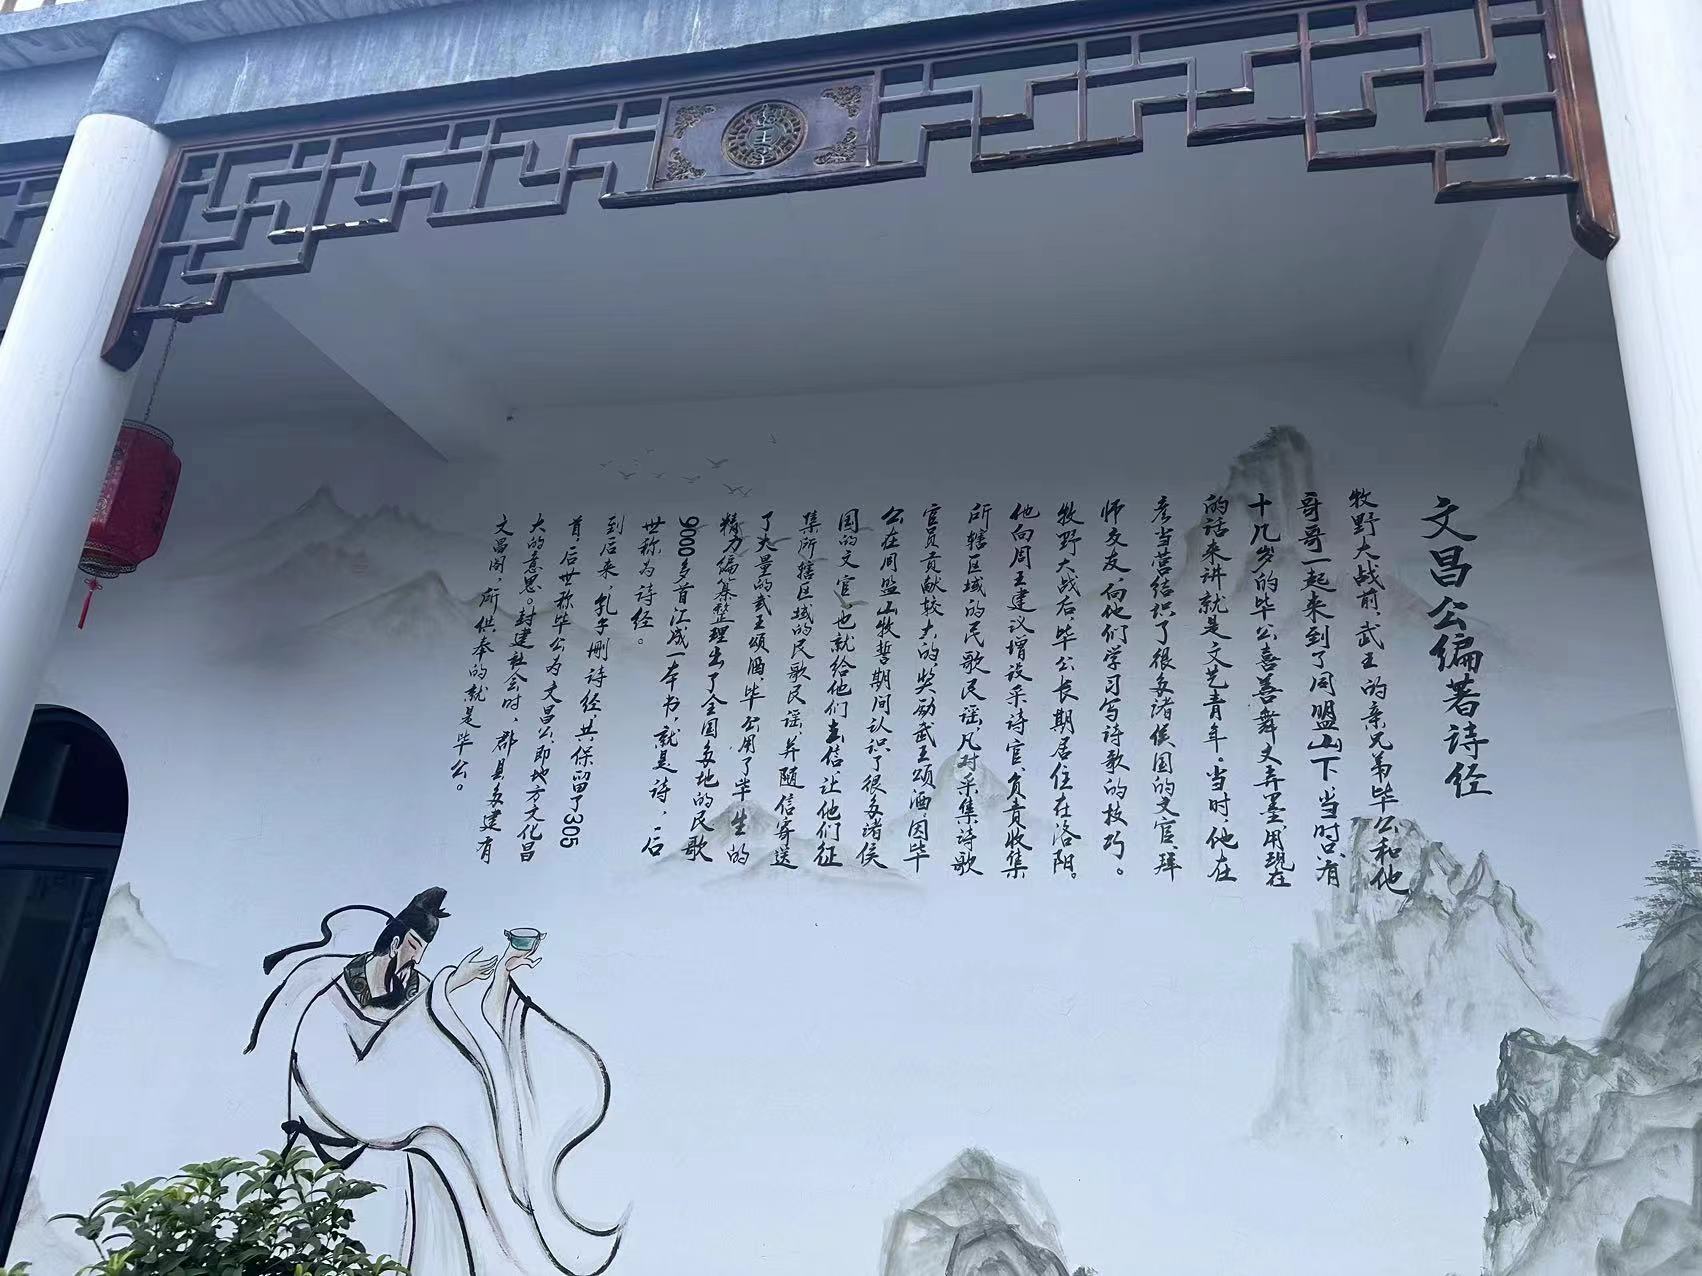 文昌公编著诗经
牧野大战前,武王的亲兄弟毕公和他
哥哥一起来到了同盟山下,当时只有
十几岁的毕公喜善舞文弄墨,用现在
的话来讲就是文艺青年。当时,他在
彦当营结识了很多诸侯国的文官,拜
师交友,向他们学习写诗歌的技巧。
牧野大战后,毕公长期居住在洛阳。
他向周王建议增设采诗官,负责收集
所辖区域的民歌民谣,凡对采集诗歌
官员贡献较大的,奖励武王颂酒,因毕
公在同盟山牧誓期间认识了很多诸侯
国的文官,也就给他们去信,让他们征
集所辖区域的民歌民谣,并随信寄送
了大量的武王颂酒,毕公用了半生的
精力编纂整理出了全国多地的民歌
9000多首汇成一本书,就是诗,后
世称为诗经。
到后来,孔子删诗经共保留了305
首,后世称毕公为文昌公,即地方文化昌
大的意思。封建社会时,郡县多建有
文昌阁,所供奉的就是毕公。